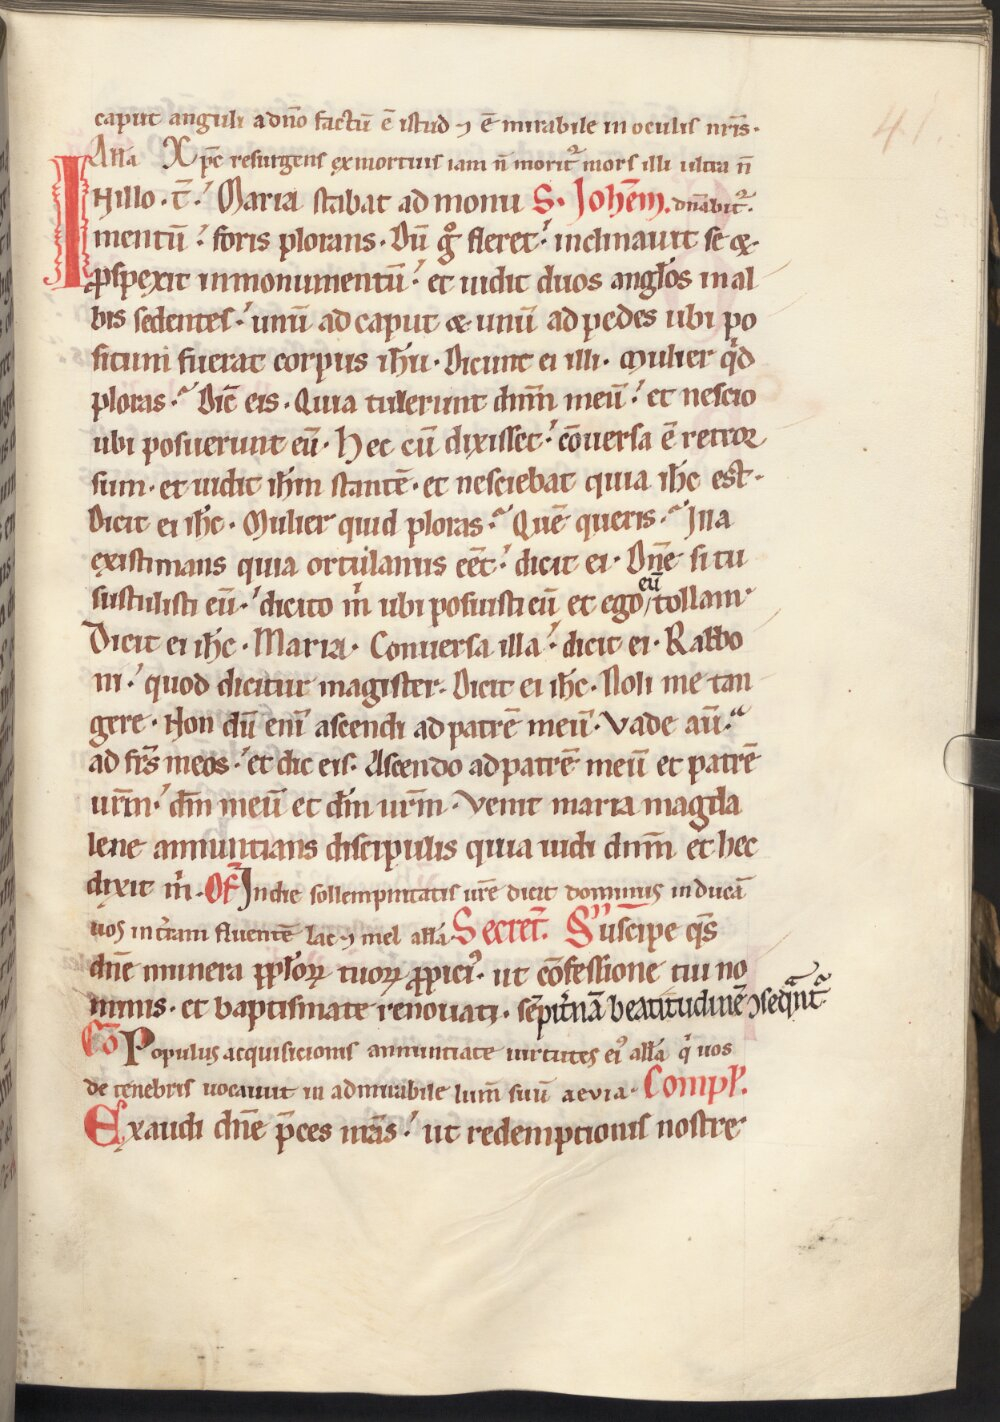 caput anguli a dn̄o factū ē istud ⁊ ē mirabile in oculis nr̄is·
Alła Xpc̄ resurgens ex mortuis iam n̄ morit᷑ mors illi ultra n̄
IN illo · t̄ · Maria stabat ad monu S · Joh̄em. dn̄abit᷑·
mentū foris plorans · Dū gͦ fleret inclinauit se &
ꝓspexit in monumentū et uidit duos angl̄os in al
bis sedentes unū ad caput & unū ad pedes ubi po
situm fuerat corpus ih̄u · Dicunt ei illi · Mulier qͥd
ploras · Dic̄ eis · Quia tulerunt dnm̄ meū et nescio
ubi posuerunt eū · Hec cū dixisset cōuersa ē retror
sum · et uidit ih̄m stantē · et nesciebat quia ih̄c est ·
Dicit ei ih̄c · Mulier quid ploras · Quē queris · Illa
existimans quia ortulanus eēt dicit ei · Dn̄e si tu
sustulisti eū · dicito m̄ ubi posuisti eū et ego eū tollam ·
Dicit ei ih̄c · Maria · Conuersa illa dicit ei · Rabbo
ni · quod dicitur magister · Dicit ei ih̄c · Noli me tan
gere · Non dū eni᷑ ascendi ad patrē meū · Vade aū ·
ad fr̄s meos et dic eis · Ascendo ad patrē meū et patrē
urm̄ · dm̄ meū et dm̄ urm̄ · Venit maria magda
lene annuntians discipulis quia uidi dnm̄ et hec
dixit m̄ · Of̄ In die sollempnitatis ur̄e dicit dominus inducā
uos in t̄ram fluentē lac ⁊ mel alła Secret̄. Suscipe qs̄
dn̄e munera ppl̄orꝝ tuorꝝ ꝓpici᷒ · ut cōfessione tui no
minis · et baptismate renouati · sēpit̄nā beatitudinē ↄseqn̄t᷑
Cō Populus acquisicionis annunciate uirtutes ei᷒ alła qͥ uos
de tenebris uocauit in admirabile lum̄ suū aevia · Compl̄.
Exaudi dn̄e p̄ces nr̄as ut redemptionis nostre
41.